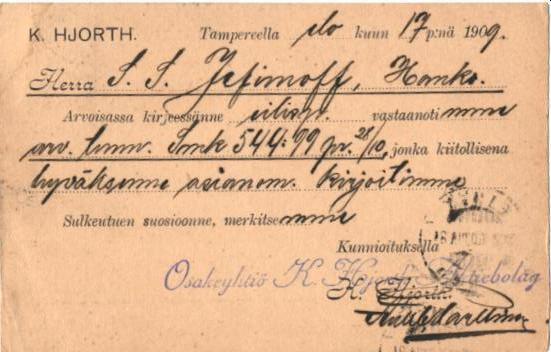 K. HJORTH.
Tampereella elo kuun 17 p:nä 1909.
Herra S. S. Jefimoff, Hanko.
Arvoisassa kirjeessänne eilisp. vastaanotimme
arv. tunn. Smk 544:99 pr. 28/10, jonka kiitollisena
hyväksenne asianom. kirjoitimme
Sulkeutuen suosioonne, merkitsemme
Kunnioituksella
Osakeyhtiö K. Hjorth Aktiebolag
K. Hjorth.